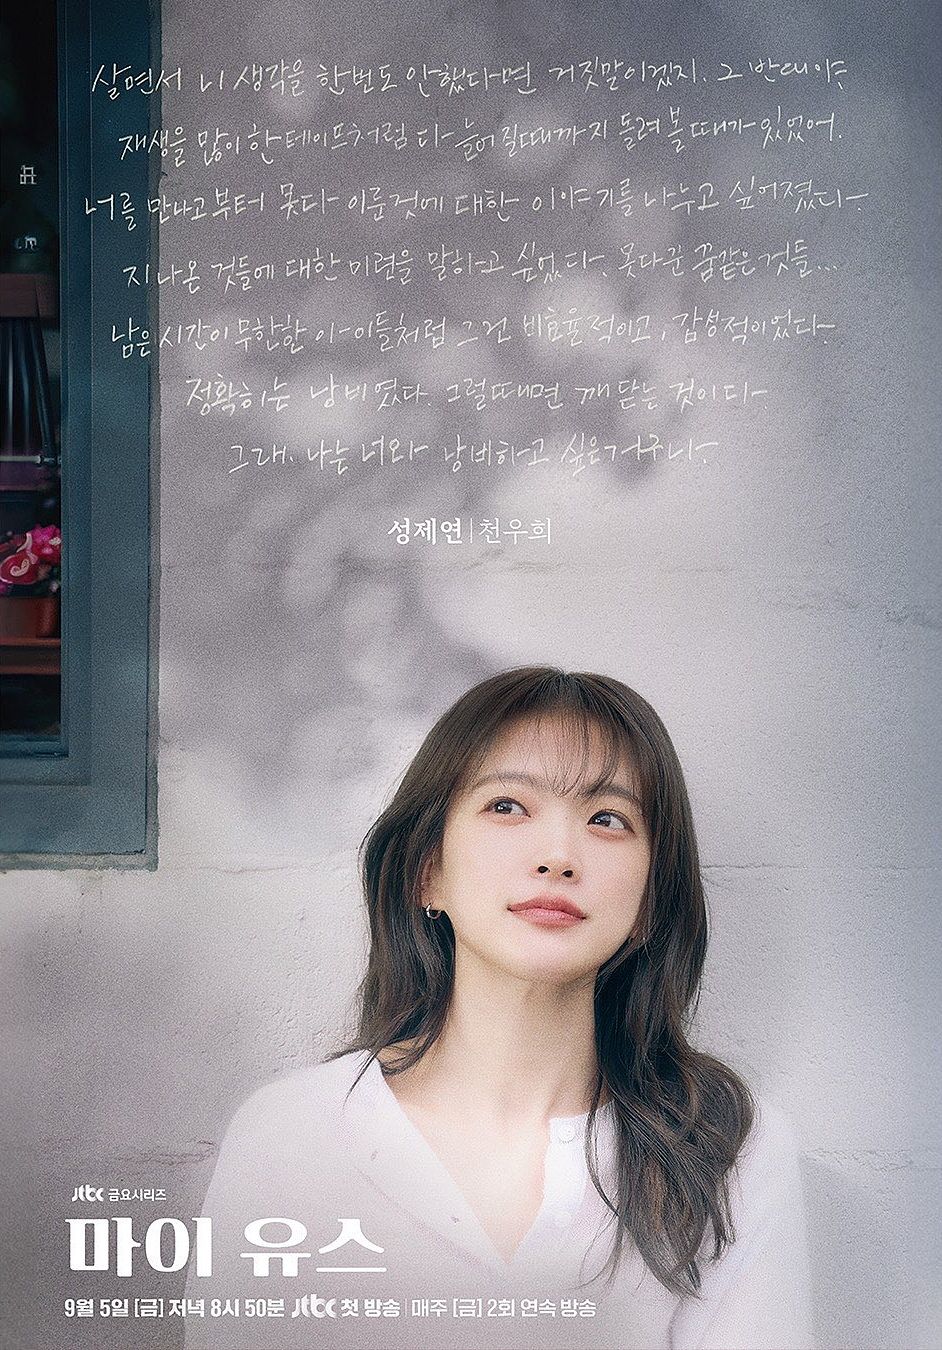 살면서 니 생각을 한번도 안했다면 거짓말이겠지. 그 반대야
재생을 많이 한 테이프처럼 다 늘어질때까지 돌려 볼 때가 있었어.
너를 만나고부터 못다 이룬것에 대한 이야기를 나누고 싶어졌다.
지나온 것들에 대한 미련을 말하고 싶었다. 못다꾼 꿈같은 것들...
남은 시간이 무한한 아이들처럼 그건 비효율적이고, 감성적이었다
정확히는 낭비였다. 그럴때면 깨닫는 것이다.
그래. 나는 너와 낭비하고 싶은거구나.
성제연|천우희
JTBC 금요시리즈
마이 유스
9월 5일 [금] 저녁 8시 50분 JTBC 첫 방송 | 매주 [금] 2회 연속 방송